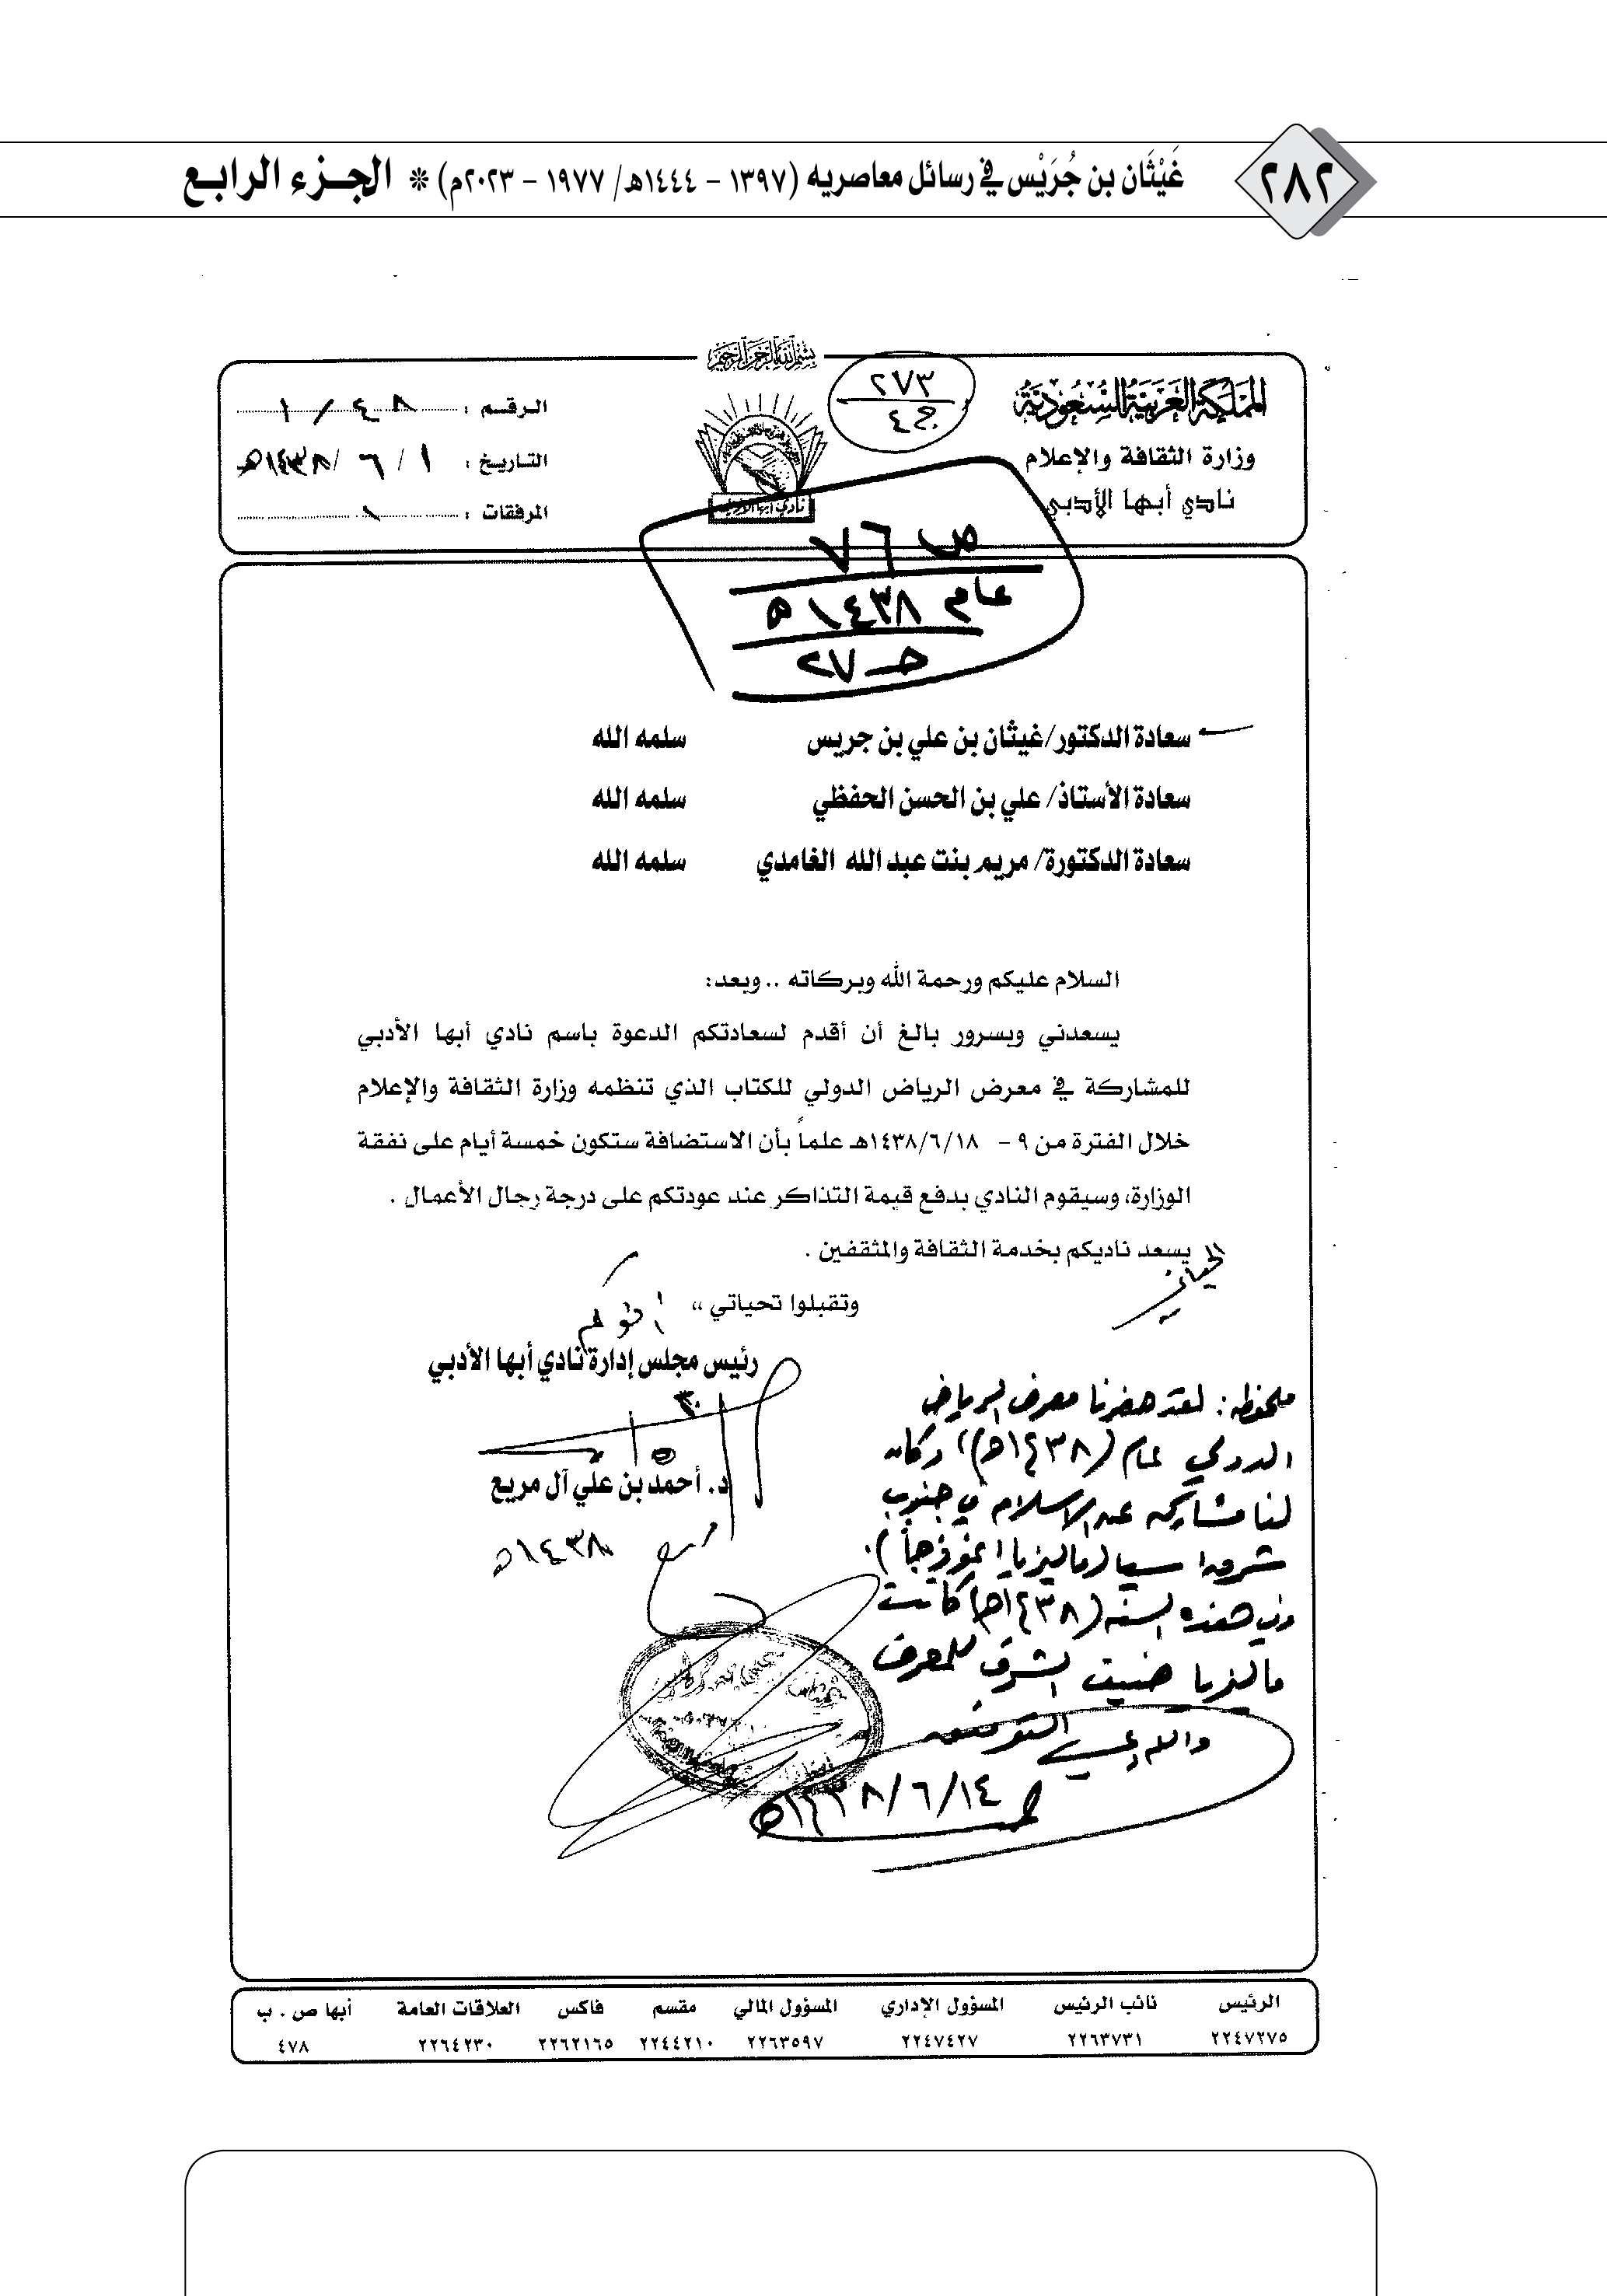 ٢٨٢
غَيْثَان بن جُرَيْس في رسائل معاصريه (١٣٩٧ - ١٤٤٤هـ/ ١٩٧٧ - ٢٠٢٣م) * الجـزء الرابـع
بسم الله الرحمن الرحيم
المملكة العربية السعودية
وزارة الثقافة والإعلام
نادي أبها الأدبي
٢٧٣
ج٤
نادي أبها الأدبي
الرقم : ٤٨ / ١
التاريخ : ١ / ٦ / ١٤٣٨هـ
المرفقات :
ص ٧٦
عام ١٤٣٨ ه
جـ ٢٧
سعادة الدكتور/غيثان بن علي بن جريس سلمه الله
سعادة الأستاذ/ علي بن الحسن الحفظي سلمه الله
سعادة الدكتورة/ مريم بنت عبد الله الغامدي سلمه الله
السلام عليكم ورحمة الله وبركاته .. وبعد:
يسعدني وبسرور بالغ أن أقدم لسعادتكم الدعوة باسم نادي أبها الأدبي
للمشاركة في معرض الرياض الدولي للكتاب الذي تنظمه وزارة الثقافة والإعلام
خلال الفترة من ٩ - ١٤٣٨/٦/١٨هـ علماً بأن الاستضافة ستكون خمسة أيام على نفقة
الوزارة، وسيقوم النادي بدفع قيمة التذاكر عند عودتكم على درجة رجال الأعمال .
يسعد ناديكم بخدمة الثقافة والمثقفين .
وتقبلوا تحياتي ،،
أخوكم
رئيس مجلس إدارة نادي أبها الأدبي
د. أحمد بن علي آل مريع
١٤٣٨ه
ملحوظة: لقد حضرنا معرض الرياض
الدولي عام (١٤٣٨هـ) وكان
لنا مشاركة عن الاسلام في جنوب
شرق اسيا (ماليزيا انموذجاً).
وفي هذه السنة (١٤٣٨هـ) كانت
ماليزيا ضيف الشرف للمعرض
والله ولي التوفيق
١٤/٦/١٤٣٨ه
الرئيس نائب الرئيس المسؤول الإداري المسؤول المالي مقسم فاكس العلاقات العامة أبها ص . ب
٢٢٤٧٢٧٥ ٢٢٦٣٧٣١ ٢٢٤٧٤٢٧ ٢٢٦٣٥٩٧ ٢٢٤٤٢١٠ ٢٢٦٢١٦٥ ٢٢٦٤٢٣٠ ٤٧٨